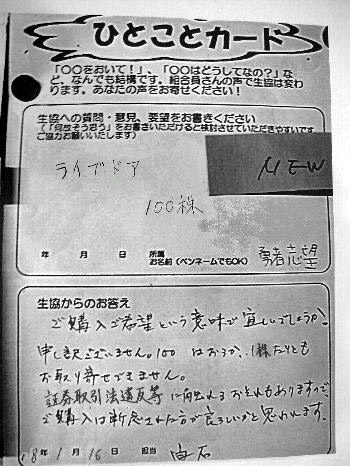 ひとことカード
「〇〇をおいて！」、「〇〇はどうしてなの？」な
ど、なんでも結構です。組合員さんの声で生協は変わ
ります。あなたの声をお寄せください！
生協への質問・意見、要望をお書きください
（「何故そう思う」をお書きいただけると検討させていただきやすいです
ご協力お願いします）
NEW
ライブドア
100株
年 月 日 所属
お名前（ペンネームでもOK） 勇者志望
生協からのお答え
ご購入ご希望という意味で宜しいでしょうか?
申し訳ございません。100はおろか、1株たりとも
お取り寄せできません。
証券取引法違反等に問われるおそれもありますので、
ご購入は断念された方が良ろしいかと思われます。
8年1月16日 担当 白石